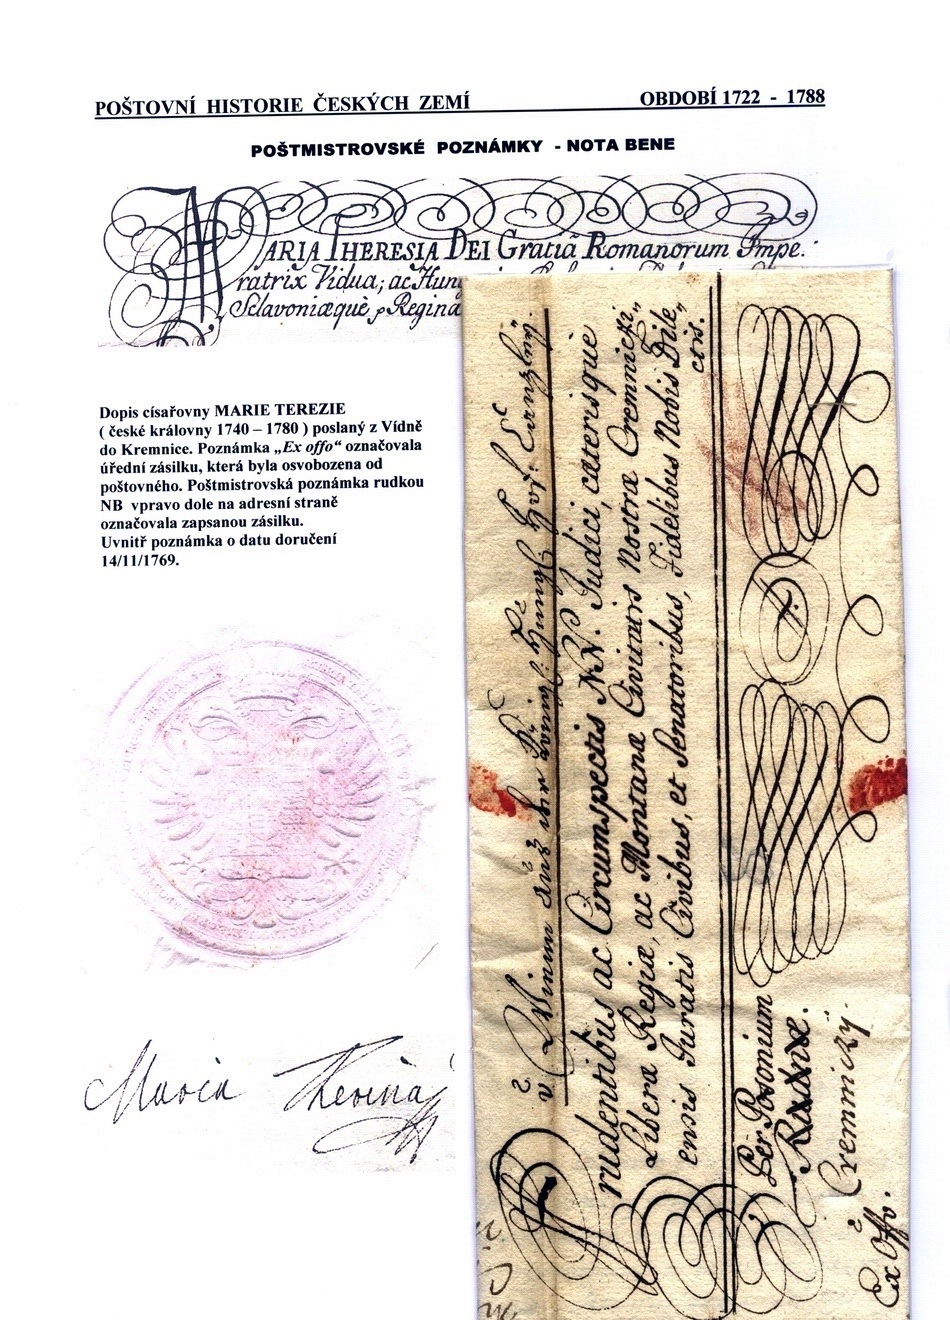 POŠTOVNÍ HISTORIE ČESKÝCH ZEMÍ
OBDOBÍ 1722 - 1788
POŠTMISTROVSKÉ POZNÁMKY - NOTA BENE
MARIA THERESIA DEI Gratiâ Romanorum Impe:
ratrix Vidua; ac Hung
Sclavoniæquè, Regina
Dopis císařovny MARIE TEREZIE
( české královny 1740 – 1780 ) poslaný z Vídně
do Kremnice. Poznámka „Ex offo“ označovala
úřední zásilku, která byla osvobozena od
poštovného. Poštmistrovská poznámka rudkou
NB vpravo dole na adresní straně
označovala zapsanou zásilku.
Uvnitř poznámka o datu doručení
14/11/1769.
Maria Theresia
Prudentibus ac Circumspectis NN. Judici, cæterisque
Liberæ Regiæ, ac Montanæ Civitatis Nostræ Cremniczi„
ensis Juratis Civibus, et Senatoribus, Fidelibus Nobis Dile„
ctis.
Per Posonium
Cremniczÿ.
Ex Offo.